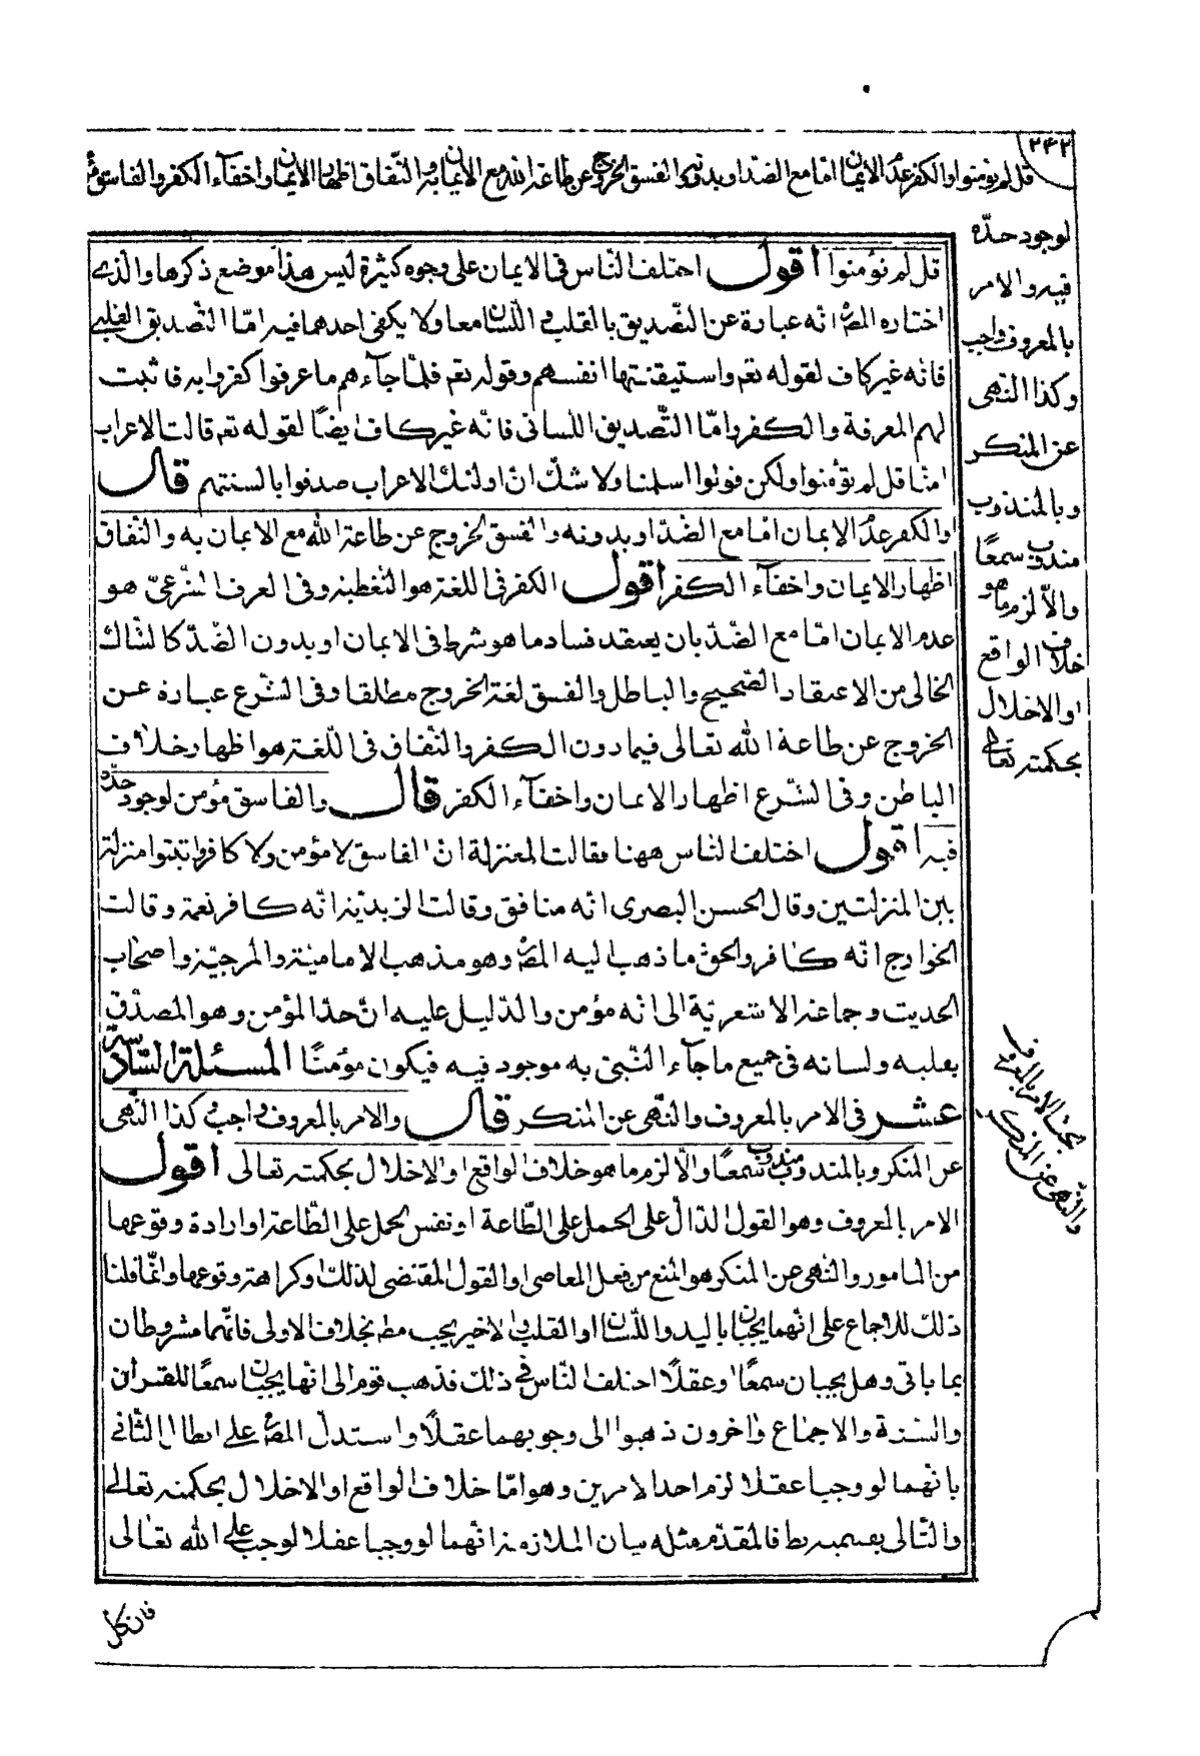 ٢٤٢
قل لم تؤمنوا والكفر عدم الايمان امّا مع الضدّ او بدونه والفسق الخروج عن طاعة الله مع الايمان به والنّفاق اظهار الايمان واخفآء الكفر والفاسق مؤمن
لوجود حدّه
فيه والامر
بالمعروف واجب
وكذا النّهى
عن المنكر
وبالمندوب
مندوب سمعًا
والّا لزم ما هو
خلاف الواقع
او الاخلال
بحكمته تعالى
قل لم تؤمنوا اقول اختلف النّاس فى الايمان على وجوه كثيرة ليس هذا موضع ذكرها والّذى
اختاره المصؒ انّه عبارة عن التّصديق بالقلب واللّسان معا ولا يكفى احدهما فيه امّا التّصديق القلبى
فانّه غير كاف لقوله تعم واستيقنتها انفسهم وقوله تعم فلمّا جآءهم ما عرفوا كفروا به فاثبت
لهم المعرفة والكفر وامّا التّصديق اللسانى فانّه غير كاف ايضًا لقوله تعم قالت الاعراب
امنّا قل لم تؤمنوا ولكن قولوا اسلمنا ولا شكّ انّ اولئك الاعراب صدقوا بالسنتهم قال
والكفر عدم الايمان امّا مع الضدّ او بدونه والفسق الخروج عن طاعة الله مع الايمان به والنّفاق
اظهار الايمان واخفآء الكفر اقول الكفر فى اللغة هو التّغطية وفى العرف الشّرعىّ هو
عدم الايمان امّا مع الضّدّ بان يعتقد فساد ما هو شرط فى الايمان او بدون الضّدّ كالشّاك
الخالى من الاعتقاد الصّحيح والباطل والفسق لغة الخروج مطلقا وفى الشّرع عبارة عن
الخروج عن طاعة الله تعالى فيما دون الكفر والنّفاق فى اللّغة هو اظهار خلاف
الباطن وفى الشّرع اظهار الايمان واخفآء الكفر قال والفاسق مؤمن لوجود حدّه
فيه اقول اختلف النّاس ههنا فقالت المعتزلة انّ الفاسق لا مؤمن ولا كافر واثبتوا منزلة
بين المنزلتين وقال الحسن البصرى انّه منافق وقالت الزيديّة انّه كافر نعمة وقالت
الخوارج انّه كافر والحقّ ما ذهب اليه المصؒ وهو مذهب الاماميّة والمرجيّة واصحاب
الحديث وجماعة الاشعريّة الى انّه مؤمن والدّليل عليه انّ حدّ المؤمن وهو المصدّق
بقلبه ولسانه فى جميع ما جآء النّبىّ به موجود فيه فيكون مؤمنًا المسئلة السّادسة
عشر فى الامر بالمعروف والنّهى عن المنكر قال والامر بالمعروف واجب وكذا النّهى
عن المنكر وبالمندوب مندوب سمعًا والّا لزم ما هو خلاف الواقع او الاخلال بحكمته تعالى اقول
الامر بالمعروف وهو القول الدّالّ على الحمل على الطّاعة او نفس الحمل على الطّاعة او ارادة وقوعها
من المامور والنّهى عن المنكر هو المنع من فعل المعاصى او القول المقتضى لذلك او كراهة وقوعها وانّما قلنا
ذلك للاجماع على انّهما يجبان باليد واللّسان والقلب والاخير يجب مط بخلاف الاولى فانّهما مشروطان
بما ياتى وهل يجبان سمعًا او عقلًا اختلف النّاس فى ذلك فذهب قوم الى انّها يجبان سمعًا للقرآن
والسّنة والاجماع واخرون ذهبوا الى وجوبهما عقلًا واستدلّ المصؒ على ابطال الثّانى
بانّهما لو وجبا عقلا لزم احد الامرين وهو امّا خلاف الواقع او الاخلال بحكمته تعالى
والتّالى بقسميه بط فالمقدّم مثله بيان الملازمة انّهما لو وجبا عقلا لوجب على الله تعالى
بحث الامر بالمعروف
والنّهى عن المنكر
فان كلّ